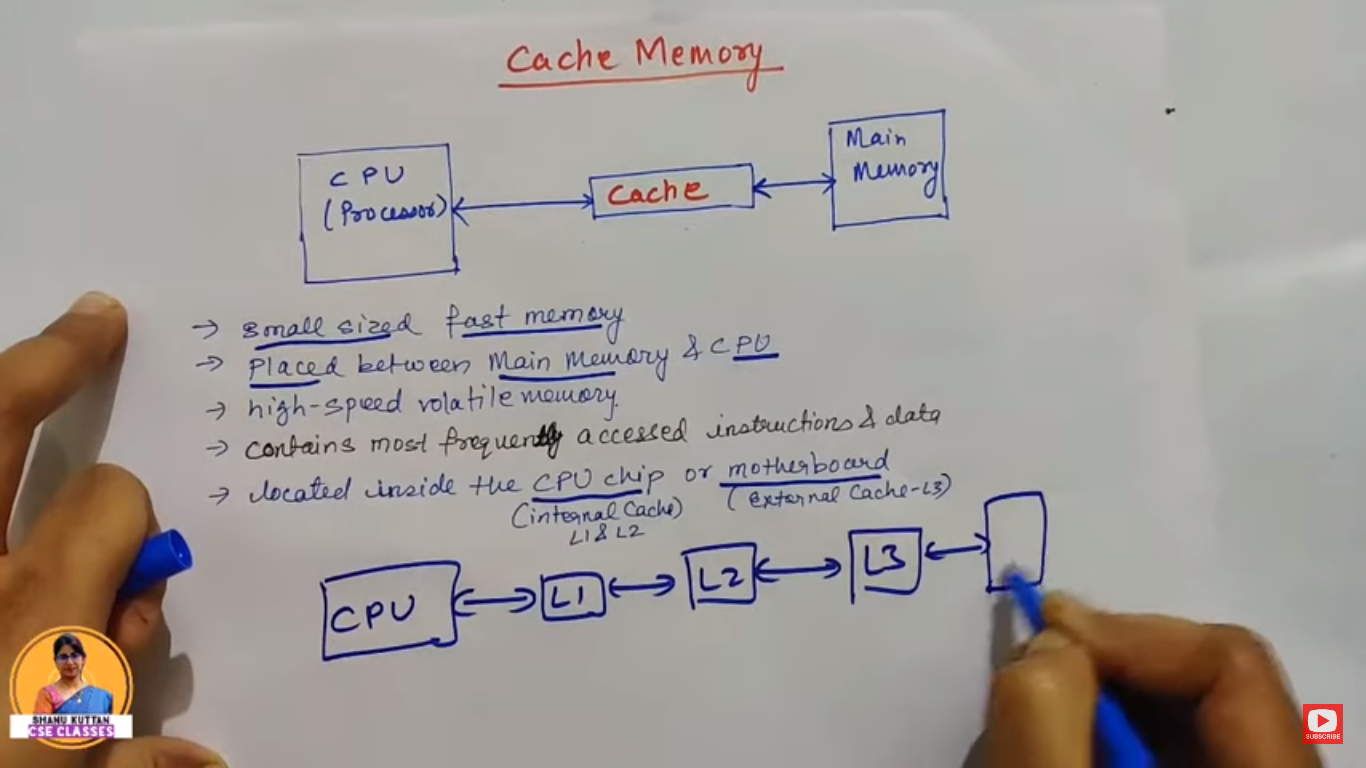 Cache Memory
CPU
(Processor)
Cache
Main
Memory
→ small sized fast memory
→ Placed between Main Memory & CPU
→ high-speed volatile memory.
→ contains most frequently accessed instructions & data
→ located inside the CPU chip or motherboard
(internal Cache)
(External Cache-L3)
L1 & L2
CPU
L1
L2
L3
SHANU KUTTAN
CSE CLASSES
SUBSCRIBE